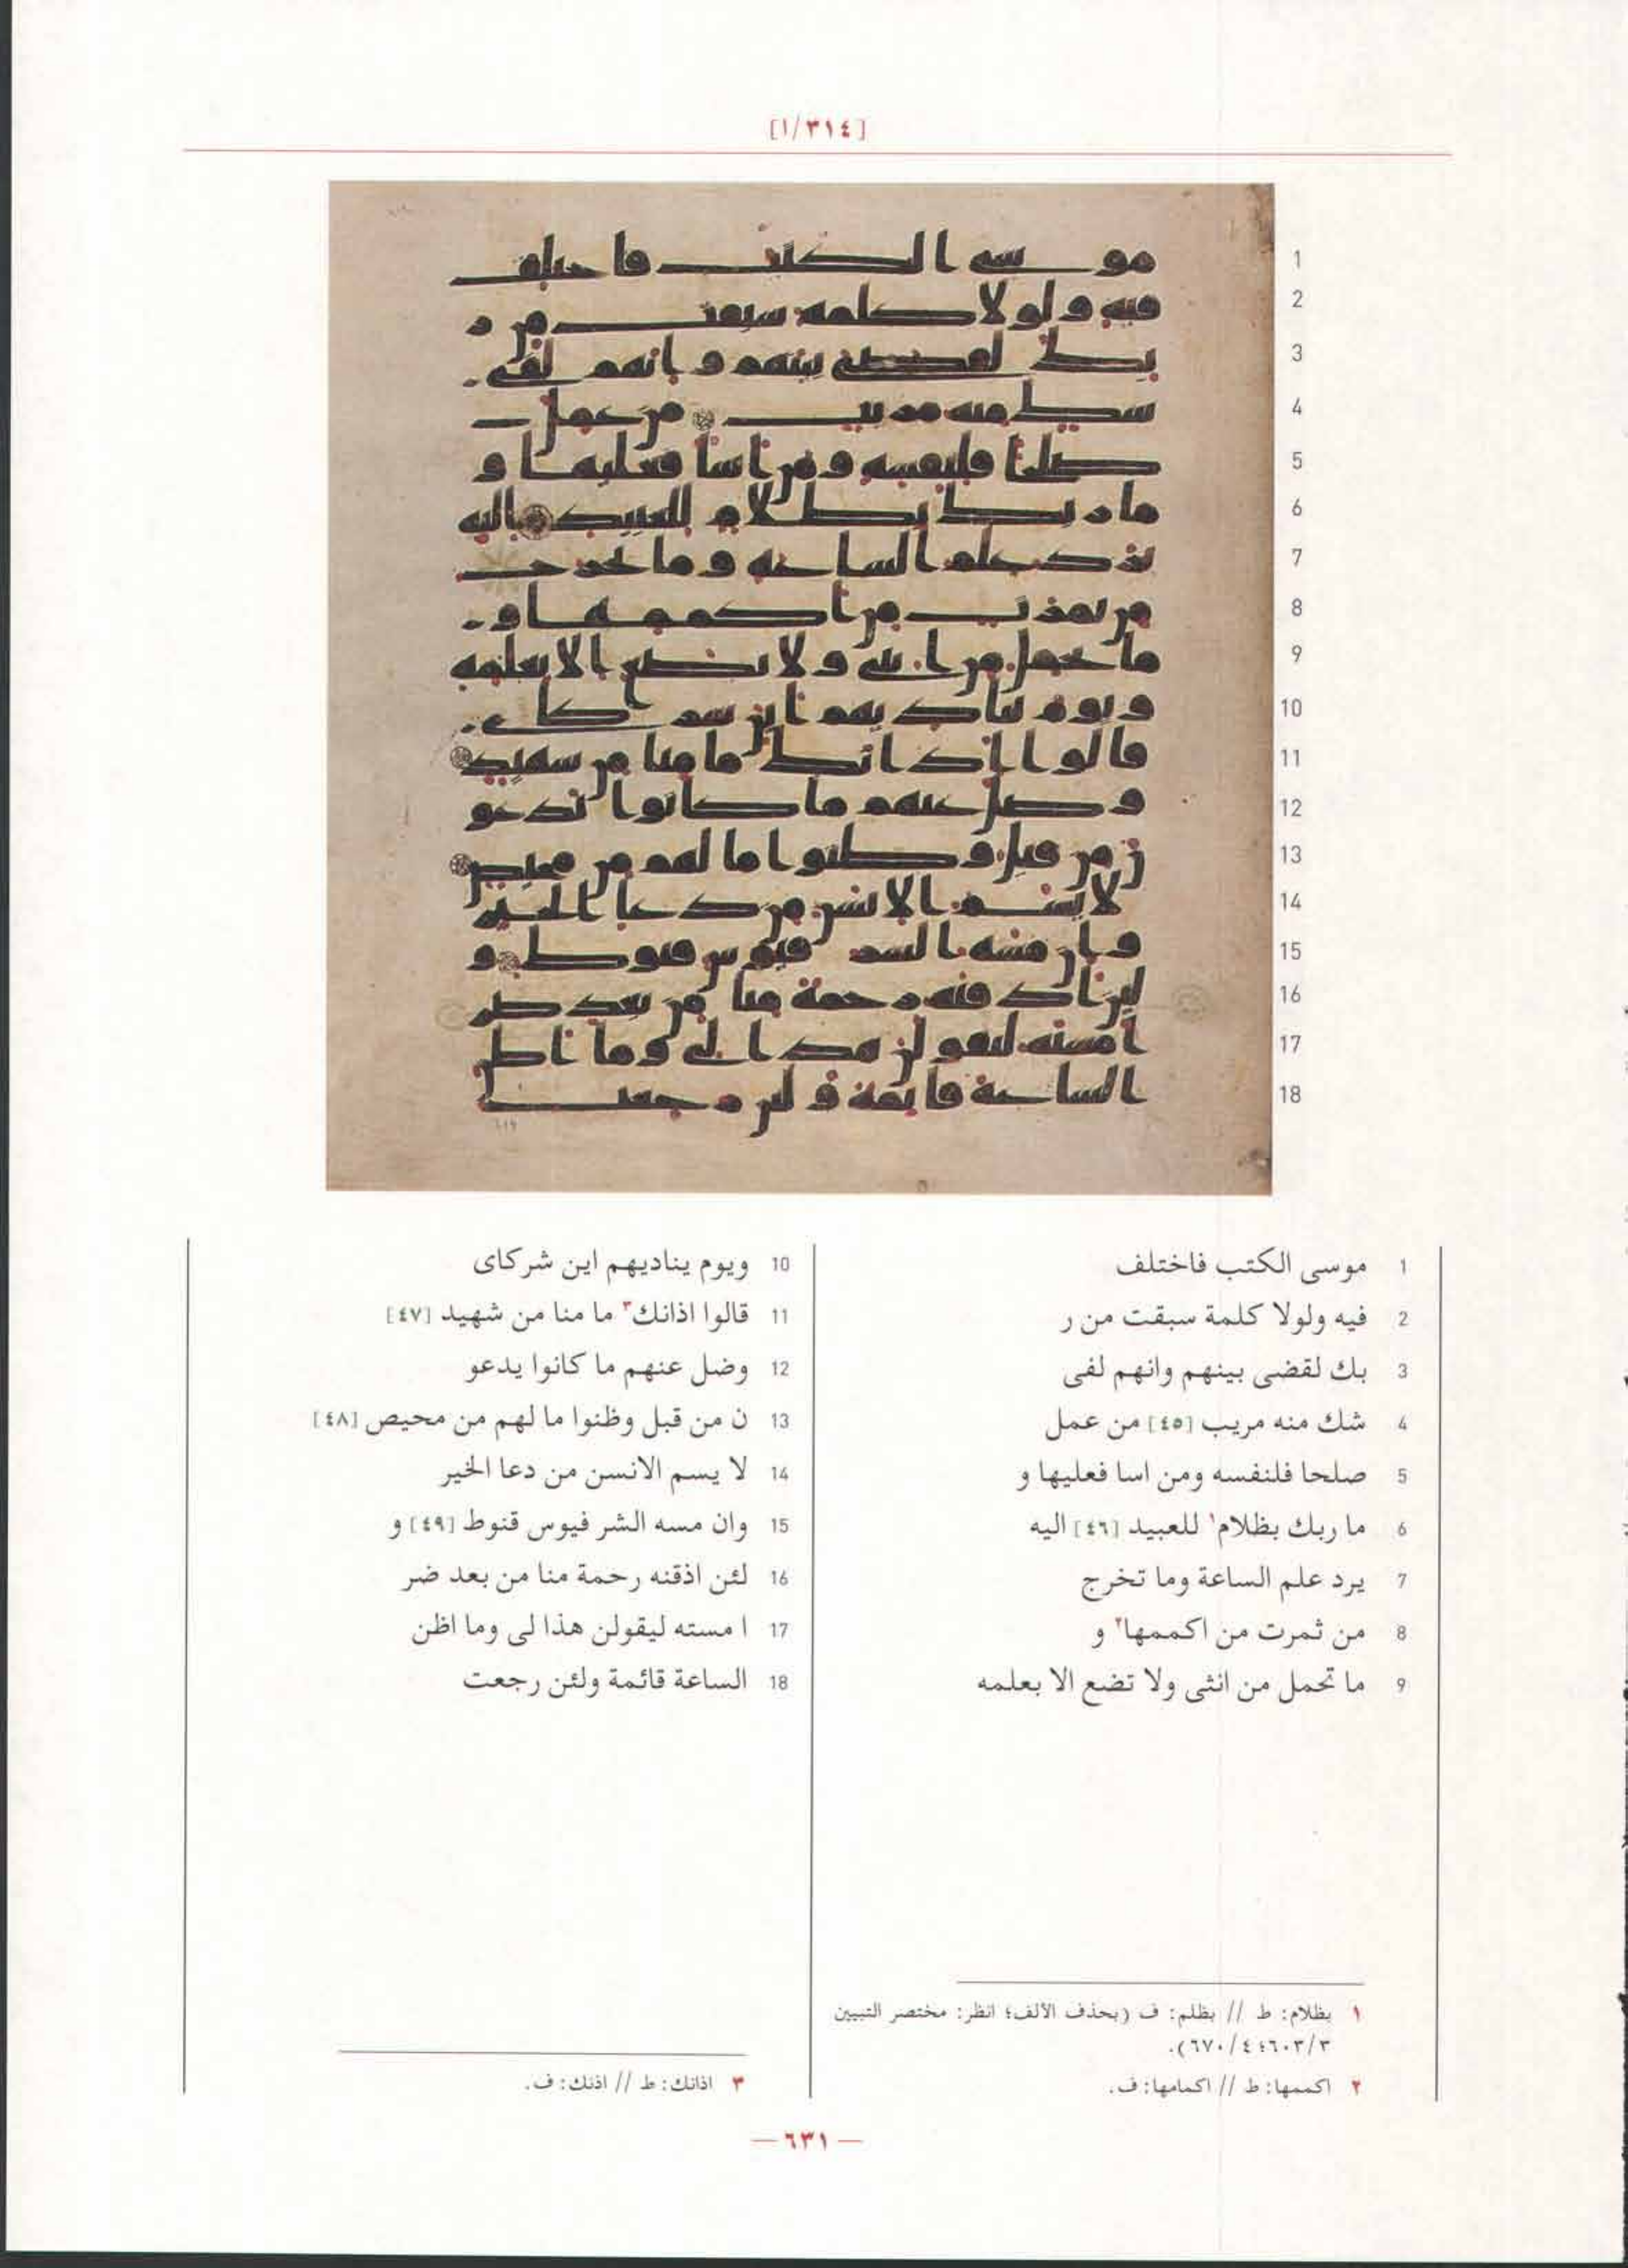 [٣١٤/١]
1 موسى الكتب فاختلف
2 فيه ولولا كلمة سبقت من ر
3 بك لقضى بينهم وانهم لفى
4 شك منه مريب [٤٥] من عمل
5 صلحا فلنفسه ومن اسا فعليها و
6 ما ربك بظلام١ للعبيد [٤٦] اليه
7 يرد علم الساعة وما تخرج
8 من ثمرت من اكممها٢ و
9 ما تحمل من انثى ولا تضع الا بعلمه
10 ويوم يناديهم اين شركاى
11 قالوا اذانك٣ ما منا من شهيد [٤٧]
12 وضل عنهم ما كانوا يدعو
13 ن من قبل وظنوا ما لهم من محيص [٤٨]
14 لا يسم الانسن من دعا الخير
15 وان مسه الشر فيوس قنوط [٤٩] و
16 لئن اذقنه رحمة منا من بعد ضر
17 ا مسته ليقولن هذا لى وما اظن
18 الساعة قائمة ولئن رجعت
١ بظلام: ط // بظلم: ف (بحذف الألف؛ انظر: مختصر التبيين
٦٠٣/٣؛ ٦٧٠/٤).
٢ اكممها: ط // اكمامها: ف.
٣ اذانك: ط // اذنك: ف.
— ٦٣١ —